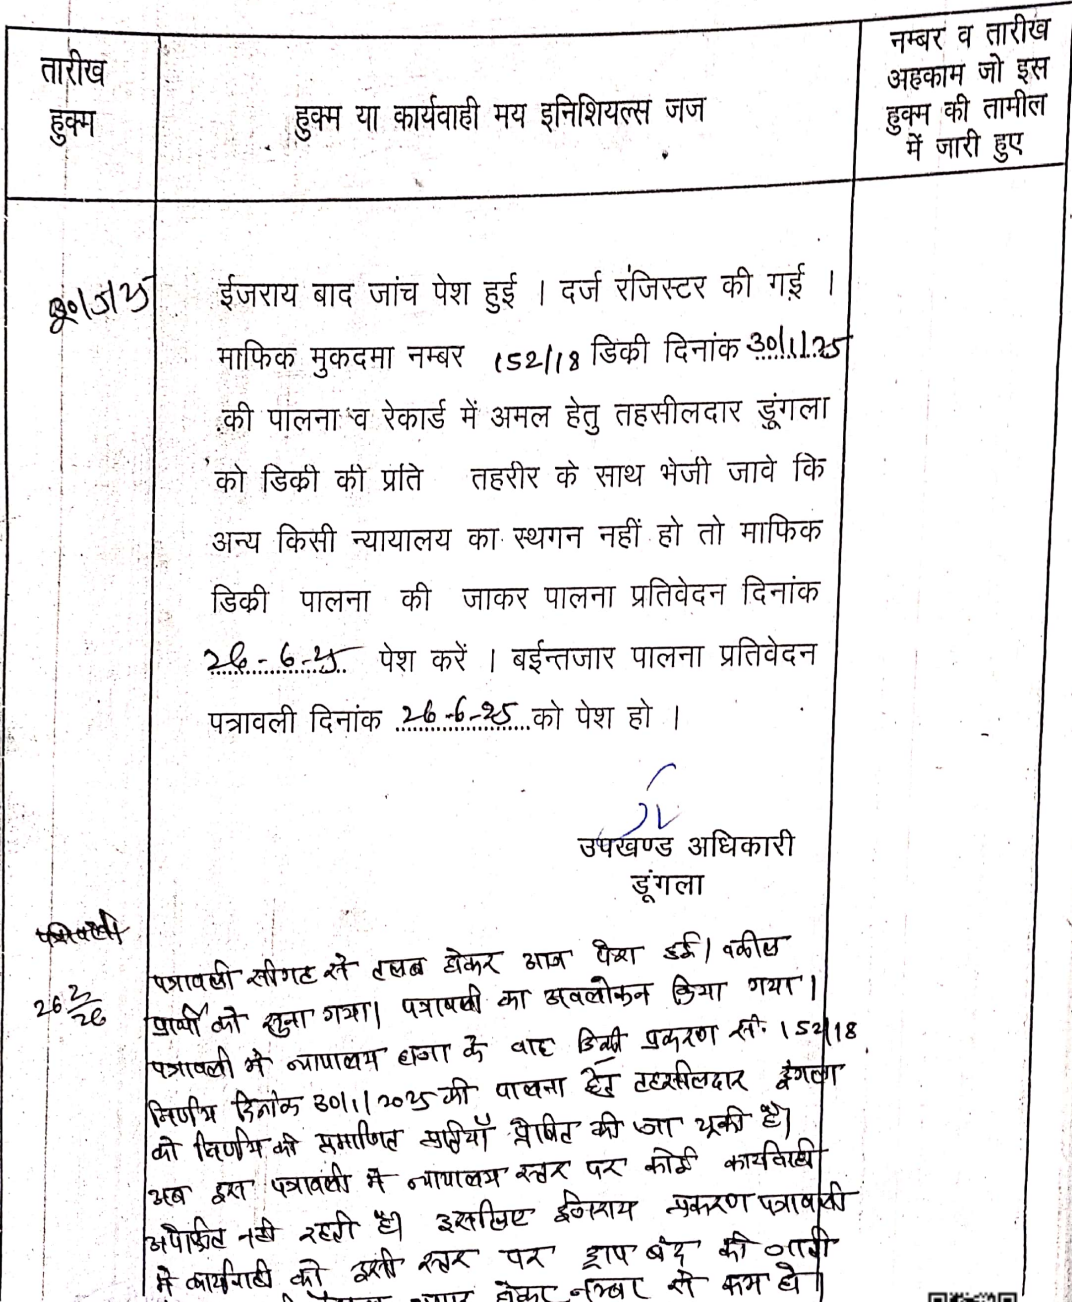 तारीख
हुक्म
हुक्म या कार्यवाही मय इनिशियल्स जज
नम्बर व तारीख
अहकाम जो इस
हुक्म की तामील
में जारी हुए
30/5/25
ईजराय बाद जांच पेश हुई । दर्ज रजिस्टर की गई ।
माफिक मुकदमा नम्बर 152/18 डिकी दिनांक 30/1/25
की पालना व रेकार्ड में अमल हेतु तहसीलदार डूंगला
को डिकी की प्रति तहरीर के साथ भेजी जावे कि
अन्य किसी न्यायालय का स्थगन नहीं हो तो माफिक
डिकी पालना की जाकर पालना प्रतिवेदन दिनांक
26-6-25 पेश करें । बईन्तजार पालना प्रतिवेदन
पत्रावली दिनांक 26-6-25 को पेश हो ।
उपखण्ड अधिकारी
डूंगला
पत्रावली सीगह से तलब होकर आज पेश हुई। वकील
26 2/26
प्रार्थी को सुना गया। पत्रावली का अवलोकन किया गया।
पत्रावली में न्यायालय हाजा के वाद डिक्री प्रकरण सं. 152/18
निर्णय दिनांक 30/1/2025 की पालना हेतु तहसीलदार डूंगला
को निर्णय की प्रमाणित प्रतियाँ प्रेषित की जा चूकी है।
अब इस पत्रावली में न्यायालय स्तर पर कोई कार्यवाही
अपेक्षित नही रहती है। इसलिए ईजराय प्रकरण पत्रावली
में कार्यवाही को इसी स्तर पर ड्राप बंद की जाती
होकर नम्बर से कम हो।